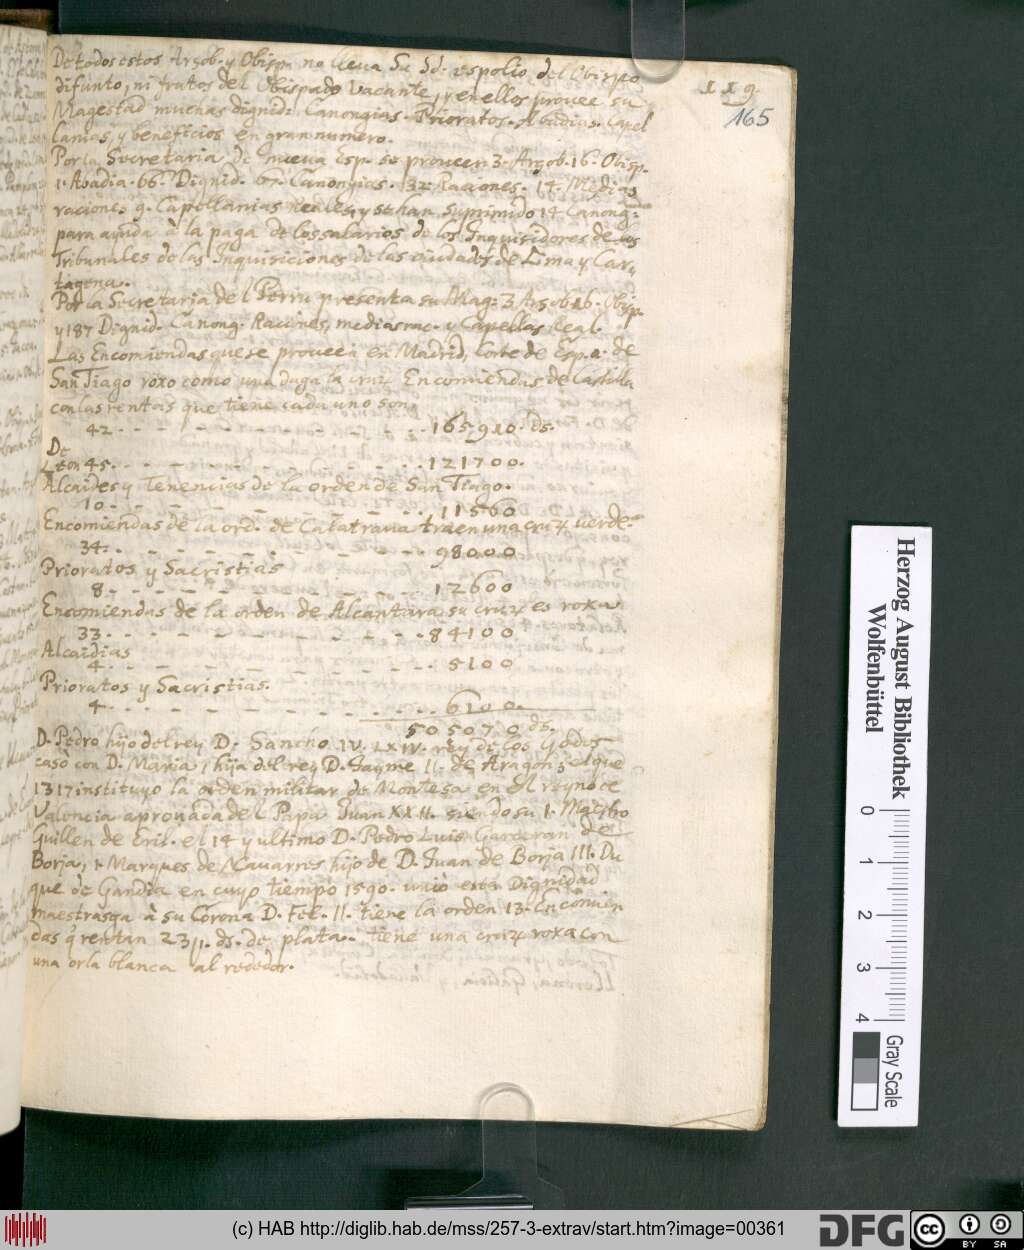 De todos estos Arzob. y Obisp. no lleua Su Sd. espolio del Obispo
difunto, ni frutos del Obispado Vacante, y en ellos prouee su
Magestad muchas dignid: Canongias. Prioratos. Abadias. Capel
lanias, y beneficios en gran numero.
xx9.
165
Por la Secretaria de nueua Esp. se proueen 3. Arzob. 16. Obisp.
1. Abadia. 66. Dignid. 67. Canongias. 32. Raciones. 14. Medias
racione. 9. Capellanias Reales, y se han suprimido 14 Canong:
para ayuda à la paga de los salarios de los Inquisidores de los
Tribunales de las Inquisiciones de las ciudades de Lima y Car,
tagena.
Por la Secretaria del Perru presenta su Mag: 3 Arzob. 16. Obisp.
y 187 Dignid. Canong. Racines, medias rac. y Capellas Real.
Las Encomiendas que se proueen en Madrid, Corte de Esp.a: de
San Tiago roxo como una daga la cruz Encomiendas de Castilla
con las rentas que tiene cada uno son,
42. - - - - - - - - - - 165910. ds.
De
Leon 45. - - - - - - - - - - 121700.
Alcaides y Tenencias de la orden de San Tiago.
10. - - - - - - - - - - 11560
Encomiendas de la ord. de Calatraua traen una cruz verde
34. - - - - - - - - - - 98000
Prioratos y Sacristias
8. - - - - - - - - - - 12600
Encomiendas de la orden de Alcantara su cruz es roxa
33. - - - - - - - - - - 84100
Alcaidias
4. - - - - - - - - - - 5100
Prioratos y Sacristias.
4. - - - - - - - - - - 6100.
505070 ds.
D. Pedro hijo del rey D. Sancho IV. LXIV. rey de los Godos
casò con D. Maria, hija del rey D. Jayme II. de Aragon; el que
1317 instituyo la orden militar de Montesa en el reyno de
Valencia aprouada del Papa Juan XXII. siendo su 1. Maestro
Guillen de Eril. el 14 y ultimo D. Pedro Luis Garceran de
Borja, 1. Marques de Nauarres hijo de D. Juan de Borja III. Du
que de Gandia en cuyo tiempo 1590. unio esta Dignidad
maestrasga à su Corona D. Fel. II. tiene la orden 13. Encomien
das q̃ rentan 23//. ds. de plata. tiene una cruz roxa con
una orla blanca al rededor.
Herzog August Bibliothek
Wolfenbüttel
0 1 2 3 4
Gray Scale
(c) HAB http://diglib.hab.de/mss/257-3-extrav/start.htm?image=00361
DFG
cc BY SA